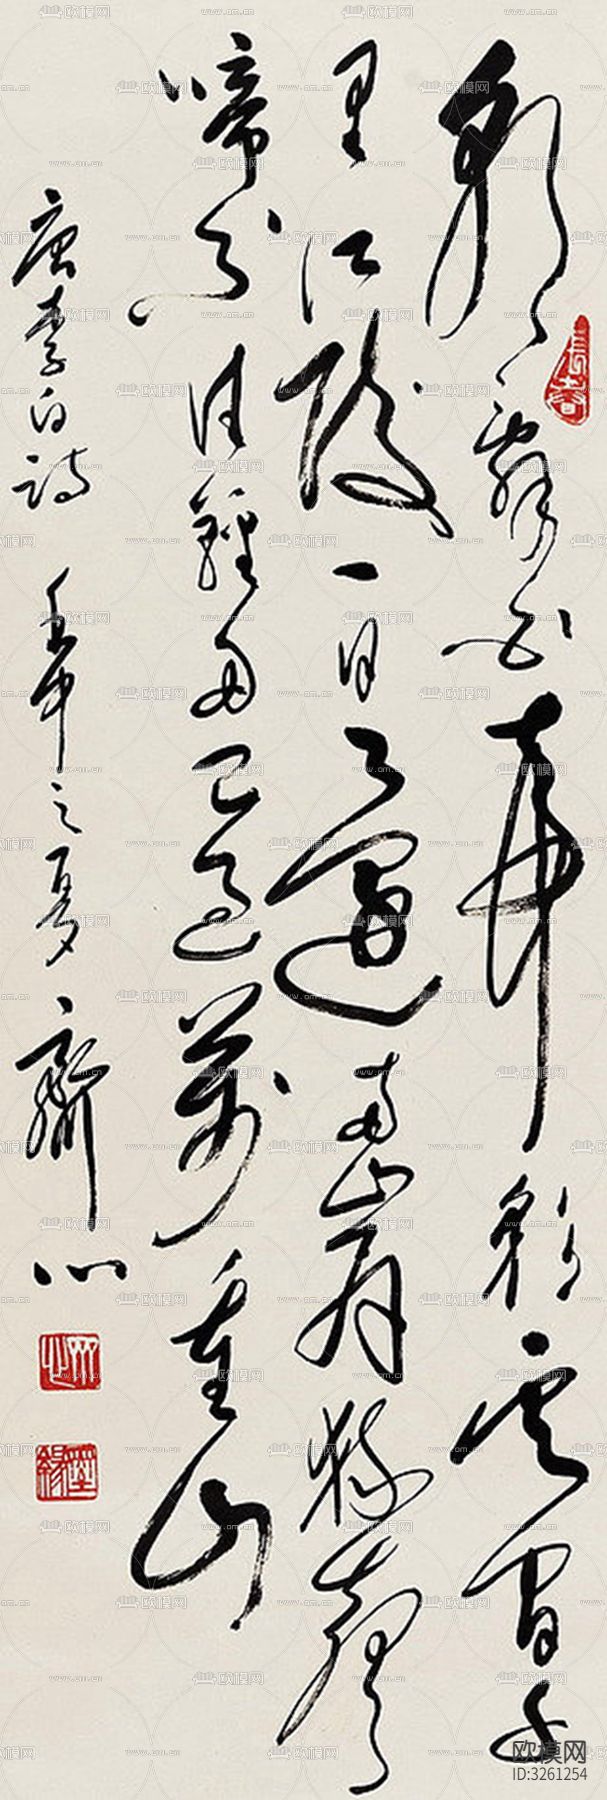 朝辭白帝彩雲間千
里江陵一日還兩岸猿聲
啼不住輕舟已過萬重山
唐李白詩 壬申之夏 齊心
欧模网
ID:3261254